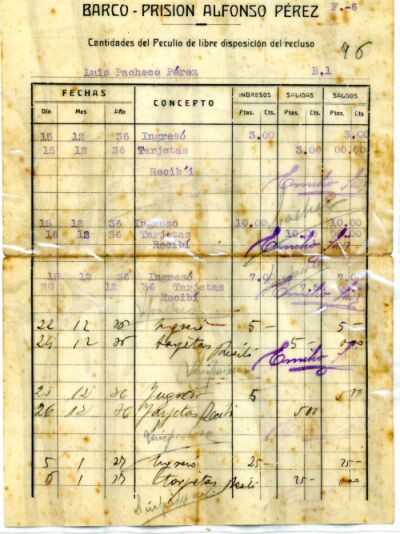 BARCO - PRISION ALFONSO PÉREZ F.-6
Cantidades del Peculio de libre disposición del recluso
96
Luis Pacheco Pérez B.1
FECHAS CONCEPTO INGRESOS SALIDAS SALDOS
Día Mes Año Ptas. Cts. Ptas. Cts. Ptas. Cts
15 12 36 Ingresó 3.00 3.00
15 12 36 Tarjetas 3.00 00.00
Recibí
Emilio
15 12 36 Ingreso 10.00 10.00
16 12 36 Tarjetas
Recibí
Emilio
18 12 36 Ingresó 7.0
20 12 36 Tarjetas
Recibí
Emilio
22 12 36 Ingresó 5- 5-
24 12 36 Tarjetas Recibí 5-
Emilio
12 36 Ingreso 5
26 12 36 Tarjetas Recibí 5.00
5 1 37 Ingreso 25- 25-
6 1 37 Tarjetas Recibí 25-